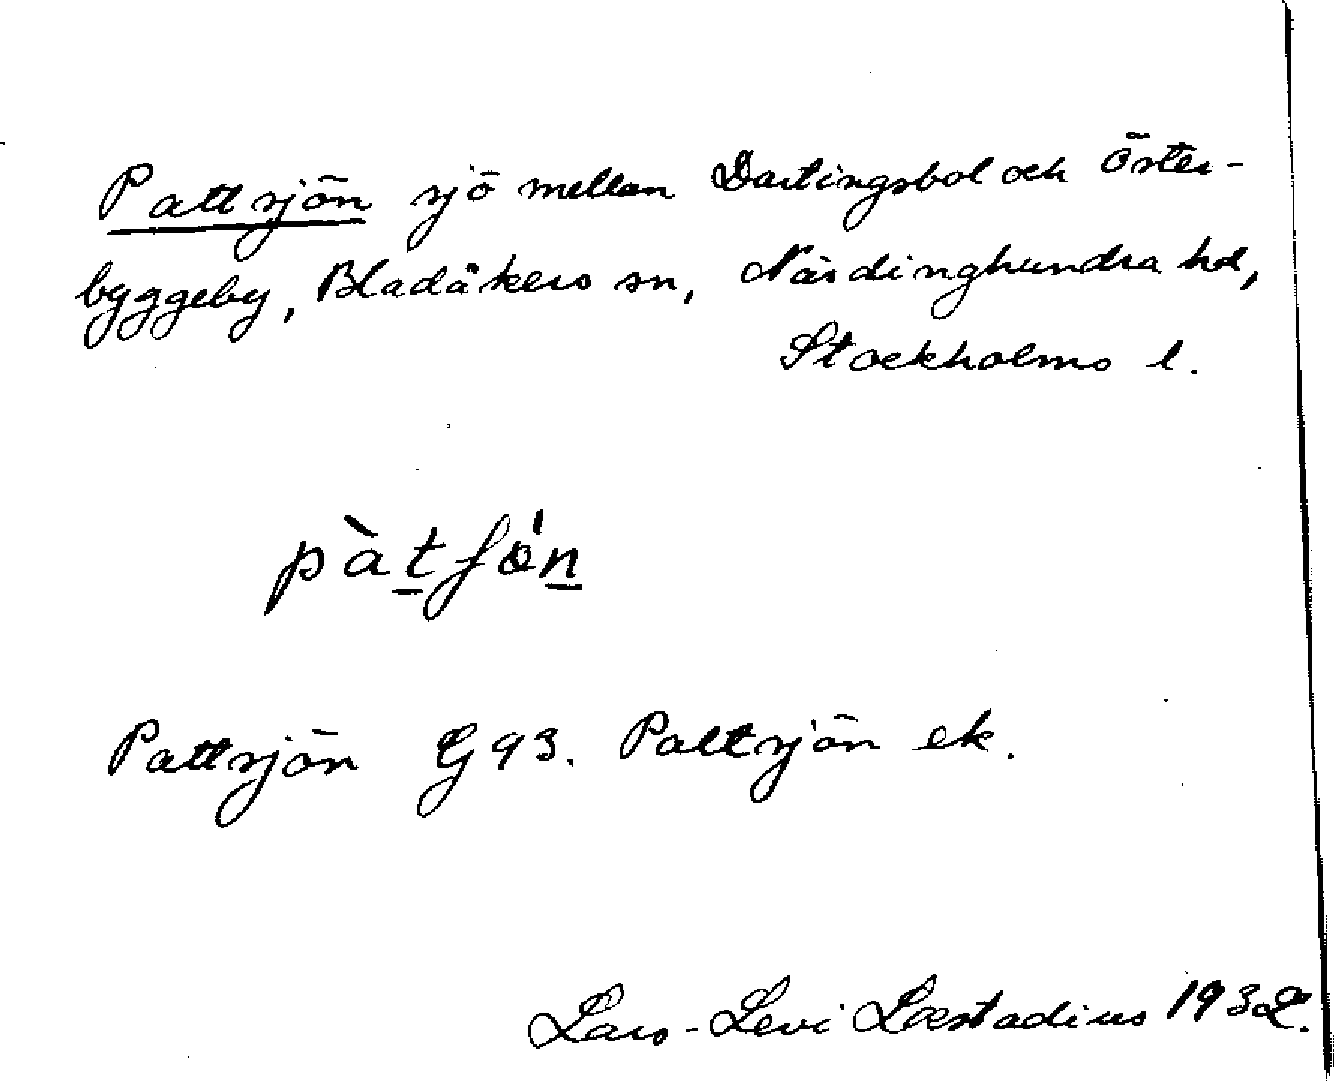 Pattsjön sjö mellan Dartingsbol och Öster-
byggeby, Bladåkers sn, Närdinghundra hd,
Stockholms l.
pàt̲ʃö́n̲
Pattsjön G 93. Paltsjön ek.
Lars-Levi Læstadius 1932.